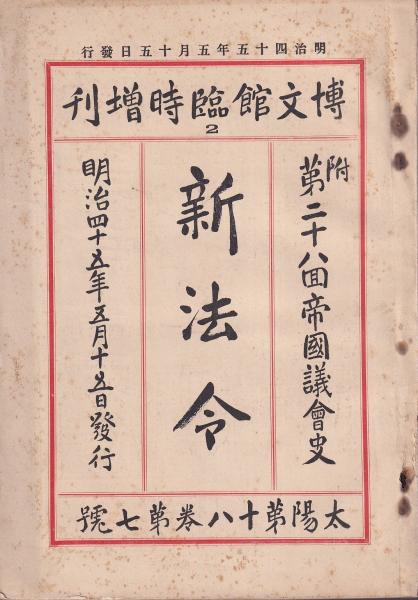 明治四十五年五月十五日發行
博文館臨時增刊
2
附 第二十八回帝國議會史
新法令
明治四十五年五月十五日發行
太陽第十八卷第七號